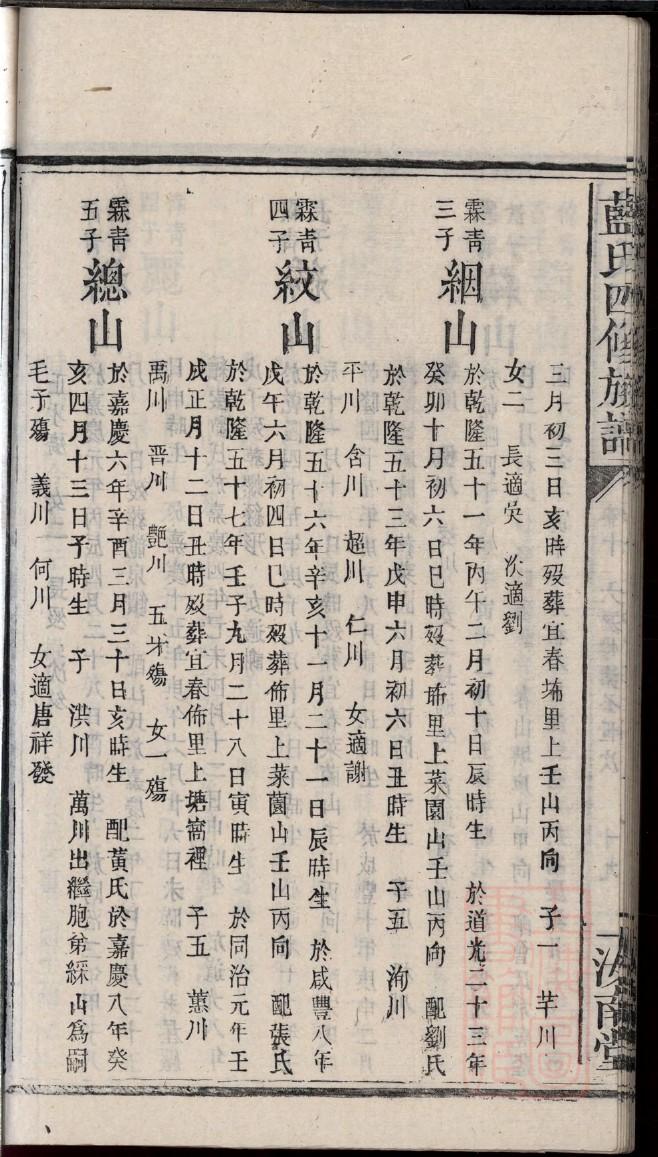 藍氏四修族譜
汝南堂
三月初三日亥時歿葬宜春坲里上壬山丙向 子一 芊川
女二 長適吳 次適劉
霖青三子 絪山 於乾隆五十一年丙午二月初十日辰時生 於道光二十三年
癸卯十月初六日巳時歿葬坲里上菜園山壬山丙向 配劉氏
於乾隆五十三年戊申六月初六日丑時生 子五 洵川
平川 含川 超川 仁川 女適謝
霖青四子 紋山 於乾隆五十六年辛亥十一月二十一日辰時生 於咸豐八年
戊午六月初四日巳時歿葬佈里上菜薗山壬山丙向 配張氏
於乾隆五十七年壬子九月二十八日寅時生 於同治元年壬
戌正月十二日丑時歿葬宜春佈里上塘窩裡 子五 蕙川
禹川 晋川 艶川 五才殤 女一殤
霖青五子 總山 於嘉慶六年辛酉三月三十日亥時生 配黃氏於嘉慶八年癸
亥四月十三日子時生 子 洪川 萬川出繼胞弟綵山爲嗣
毛子殤 義川 何川 女適唐祥發